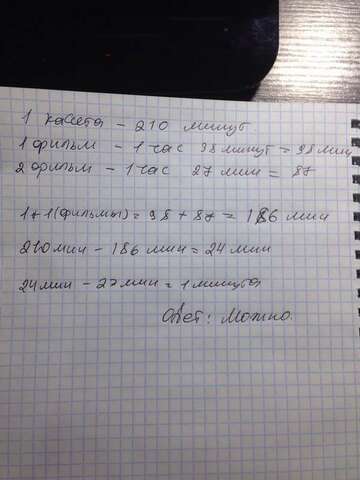 1 кассета - 210 минут
1 фильм - 1 час 38 минут = 98 мин
2 фильм - 1 час 27 мин = 87
1+1 (фильмы) = 98 + 87 = 186 мин
210 мин - 186 мин = 24 мин
24 мин - 23 мин = 1 минута
Ответ: Можно.